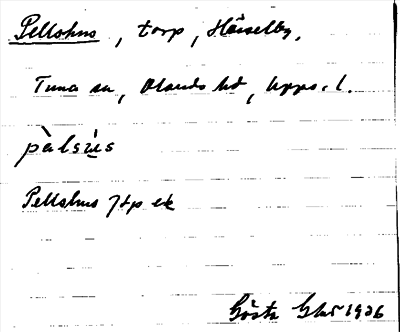 Pellshus, torp, Hässelby,
Tuna sn, Olands hd, Upps. l.
pàlsùs
Pellshus Jtp ek
Gösta 1926